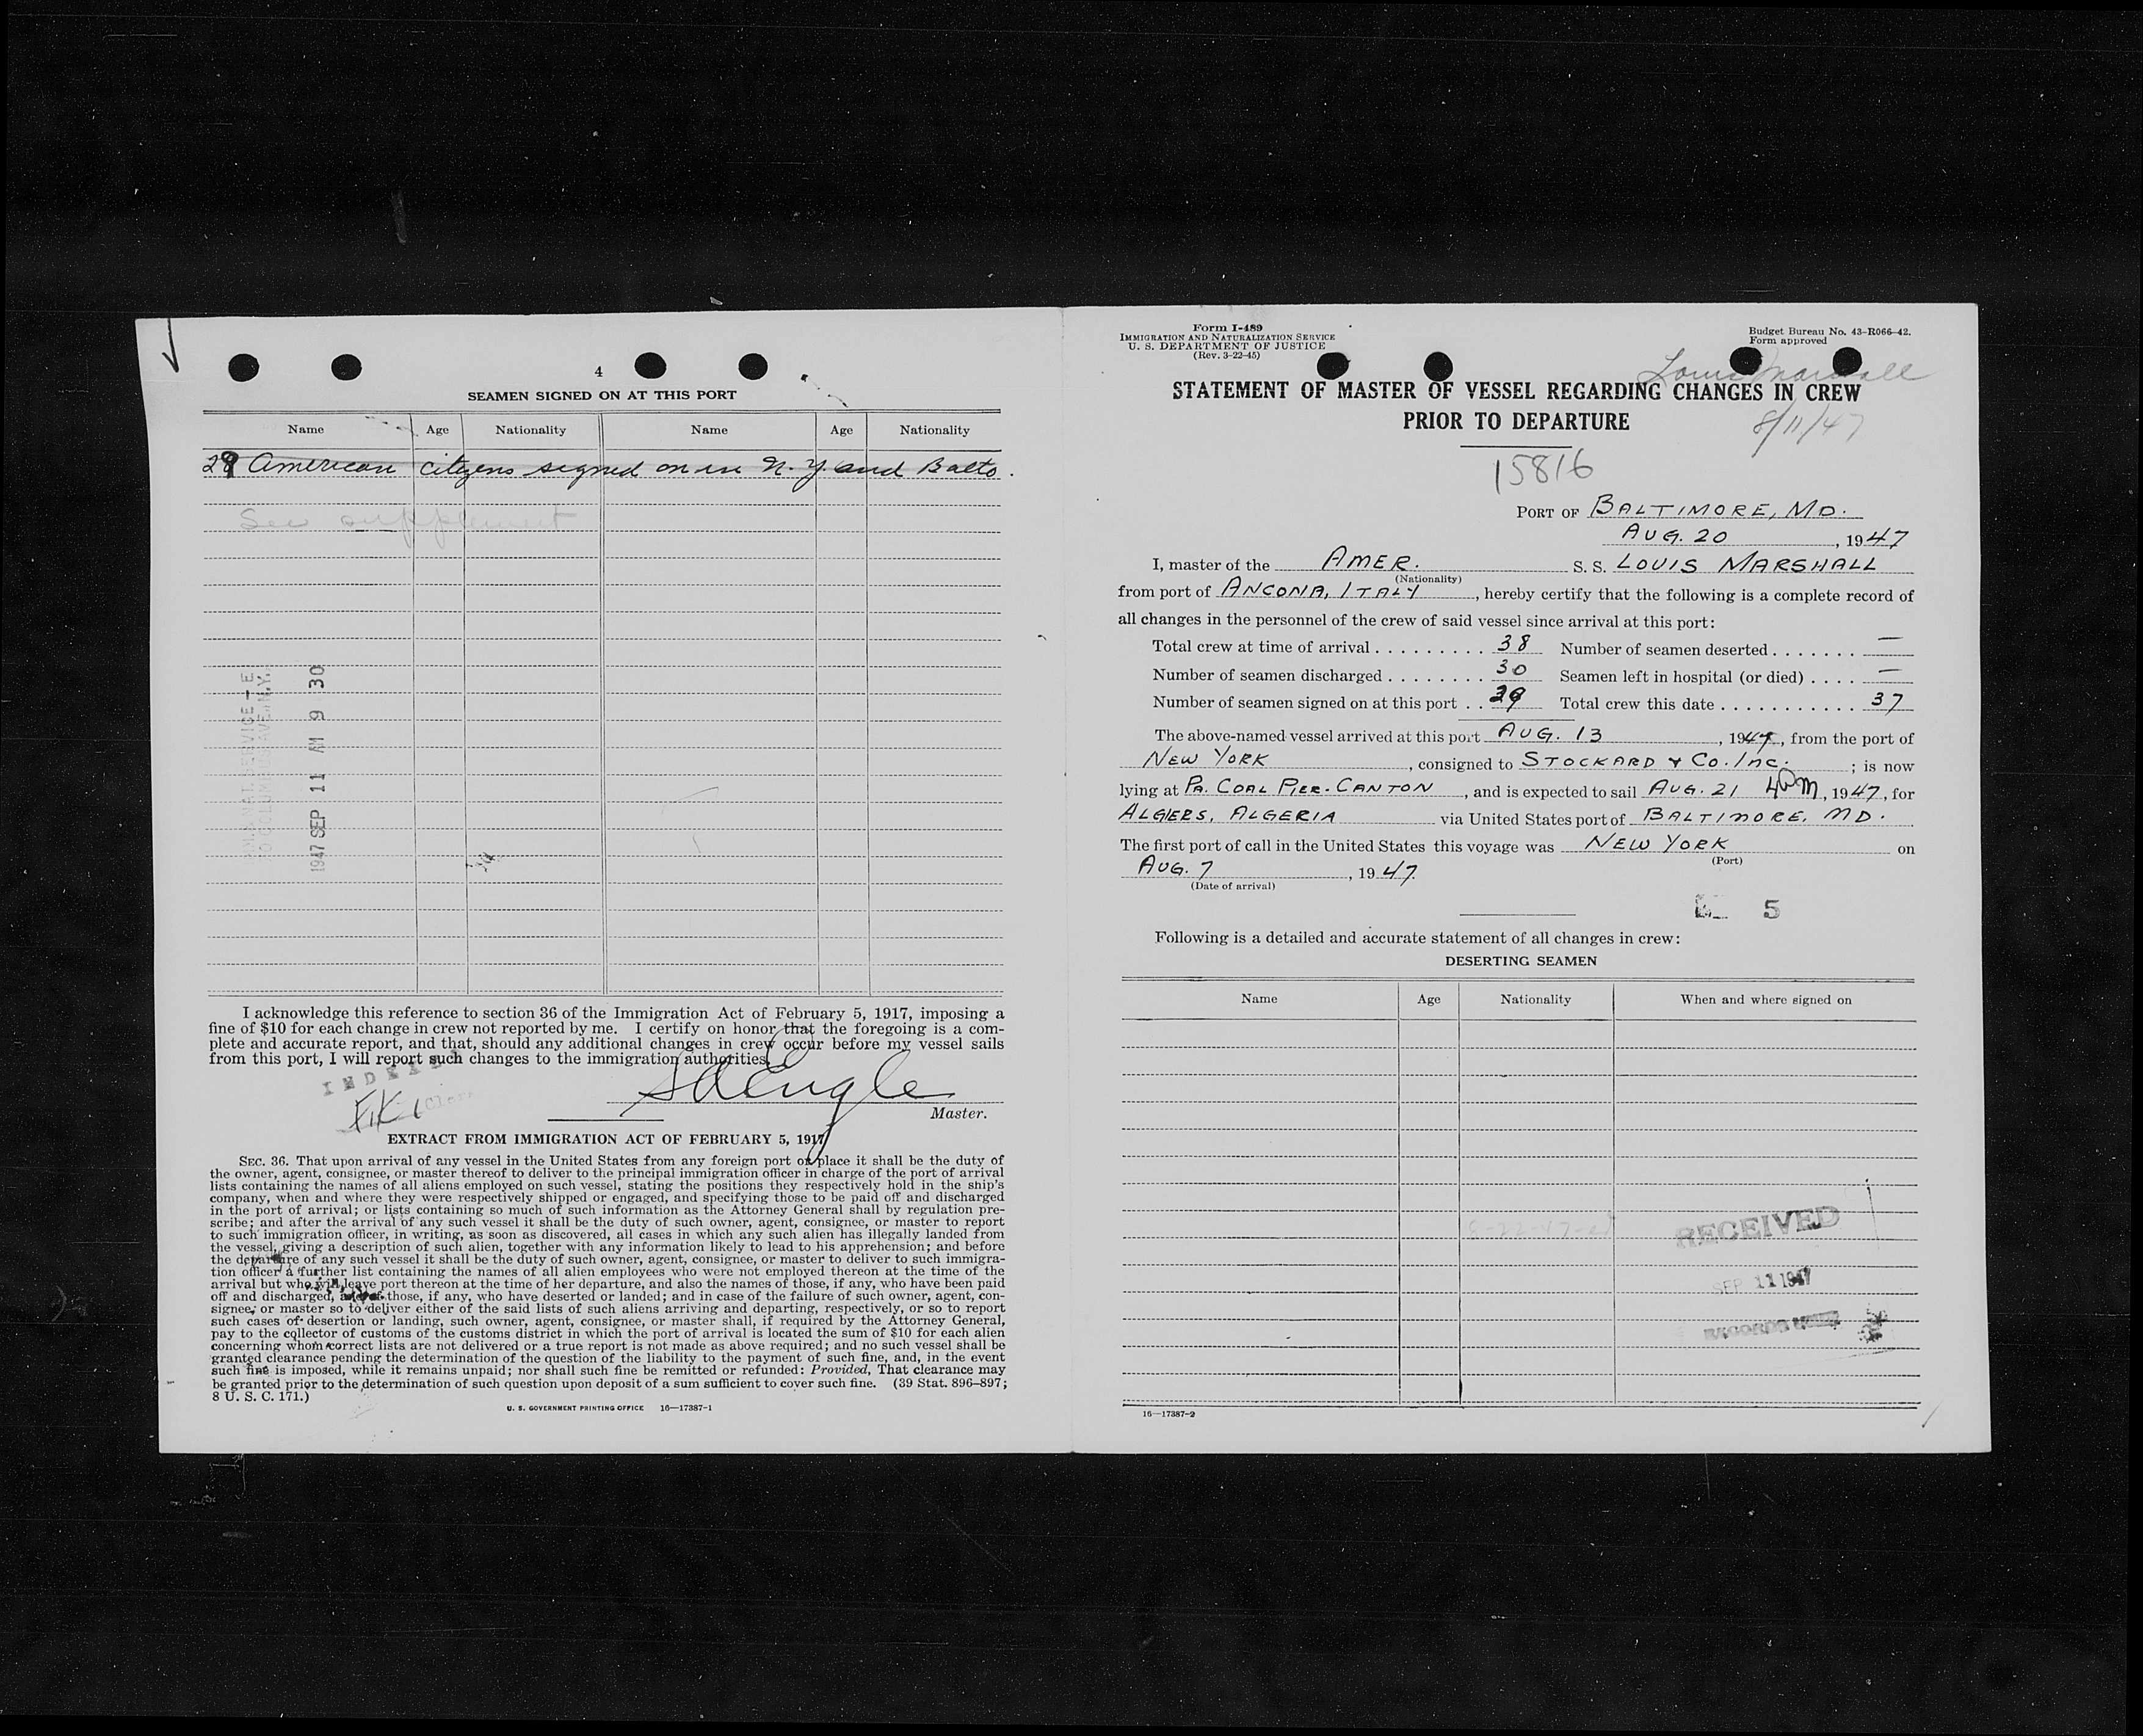 4
SEAMEN SIGNED ON AT THIS PORT
Name Age Nationality Name Age Nationality
29 American citizens signed on in N.Y. and Balto.
See supplement
1947 SEP 11 AM 9 30
I acknowledge this reference to section 36 of the Immigration Act of February 5, 1917, imposing a
fine of $10 for each change in crew not reported by me. I certify on honor that the foregoing is a com-
plete and accurate report, and that, should any additional changes in crew occur before my vessel sails
from this port, I will report such changes to the immigration authorities.
SD Engle
Master.
EXTRACT FROM IMMIGRATION ACT OF FEBRUARY 5, 1917
SEC. 36. That upon arrival of any vessel in the United States from any foreign port or place it shall be the duty of
the owner, agent, consignee, or master thereof to deliver to the principal immigration officer in charge of the port of arrival
lists containing the names of all aliens employed on such vessel, stating the positions they respectively hold in the ship's
company, when and where they were respectively shipped or engaged, and specifying those to be paid off and discharged
in the port of arrival; or lists containing so much of such information as the Attorney General shall by regulation pre-
scribe; and after the arrival of any such vessel it shall be the duty of such owner, agent, consignee, or master to report
to such immigration officer, in writing, as soon as discovered, all cases in which any such alien has illegally landed from
the vessel, giving a description of such alien, together with any information likely to lead to his apprehension; and before
the departure of any such vessel it shall be the duty of such owner, agent, consignee, or master to deliver to such immigra-
tion officer a further list containing the names of all alien employees who were not employed thereon at the time of the
arrival but who will leave port thereon at the time of her departure, and also the names of those, if any, who have been paid
off and discharged, and of those, if any, who have deserted or landed; and in case of the failure of such owner, agent, con-
signee, or master so to deliver either of the said lists of such aliens arriving and departing, respectively, or so to report
such cases of desertion or landing, such owner, agent, consignee, or master shall, if required by the Attorney General,
pay to the collector of customs of the customs district in which the port of arrival is located the sum of $10 for each alien
concerning whom correct lists are not delivered or a true report is not made as above required; and no such vessel shall be
granted clearance pending the determination of the question of the liability to the payment of such fine, and, in the event
such fine is imposed, while it remains unpaid; nor shall such fine be remitted or refunded: Provided, That clearance may
be granted prior to the determination of such question upon deposit of a sum sufficient to cover such fine. (39 Stat. 896–897;
8 U. S. C. 171.)
U. S. GOVERNMENT PRINTING OFFICE 16—17387-1
Form I-489
IMMIGRATION AND NATURALIZATION SERVICE
U. S. DEPARTMENT OF JUSTICE
(Rev. 3-22-45)
Budget Bureau No. 43-R066-42.
Form approved
Louis Marshall
STATEMENT OF MASTER OF VESSEL REGARDING CHANGES IN CREW
PRIOR TO DEPARTURE
8/11/47
15816
PORT OF BALTIMORE, MD.
AUG. 20, 1947
I, master of the AMER. S. S. LOUIS MARSHALL
(Nationality)
from port of ANCONA, ITALY, hereby certify that the following is a complete record of
all changes in the personnel of the crew of said vessel since arrival at this port:
Total crew at time of arrival . . . . . . . . . 38 Number of seamen deserted . . . . . . . —
Number of seamen discharged . . . . . . . . 30 Seamen left in hospital (or died) . . . . —
Number of seamen signed on at this port . . 29 Total crew this date . . . . . . . . . . . 37
The above-named vessel arrived at this port AUG. 13, 1947, from the port of
NEW YORK, consigned to STOCKARD & CO. INC.; is now
lying at PA. COAL PIER-CANTON, and is expected to sail AUG. 21 4PM, 1947, for
ALGIERS, ALGERIA via United States port of BALTIMORE, MD.
The first port of call in the United States this voyage was NEW YORK on
(Port)
AUG. 7, 1947.
(Date of arrival)
5
Following is a detailed and accurate statement of all changes in crew:
DESERTING SEAMEN
Name Age Nationality When and where signed on
RECEIVED
SEP 11 1947
16—17387-2